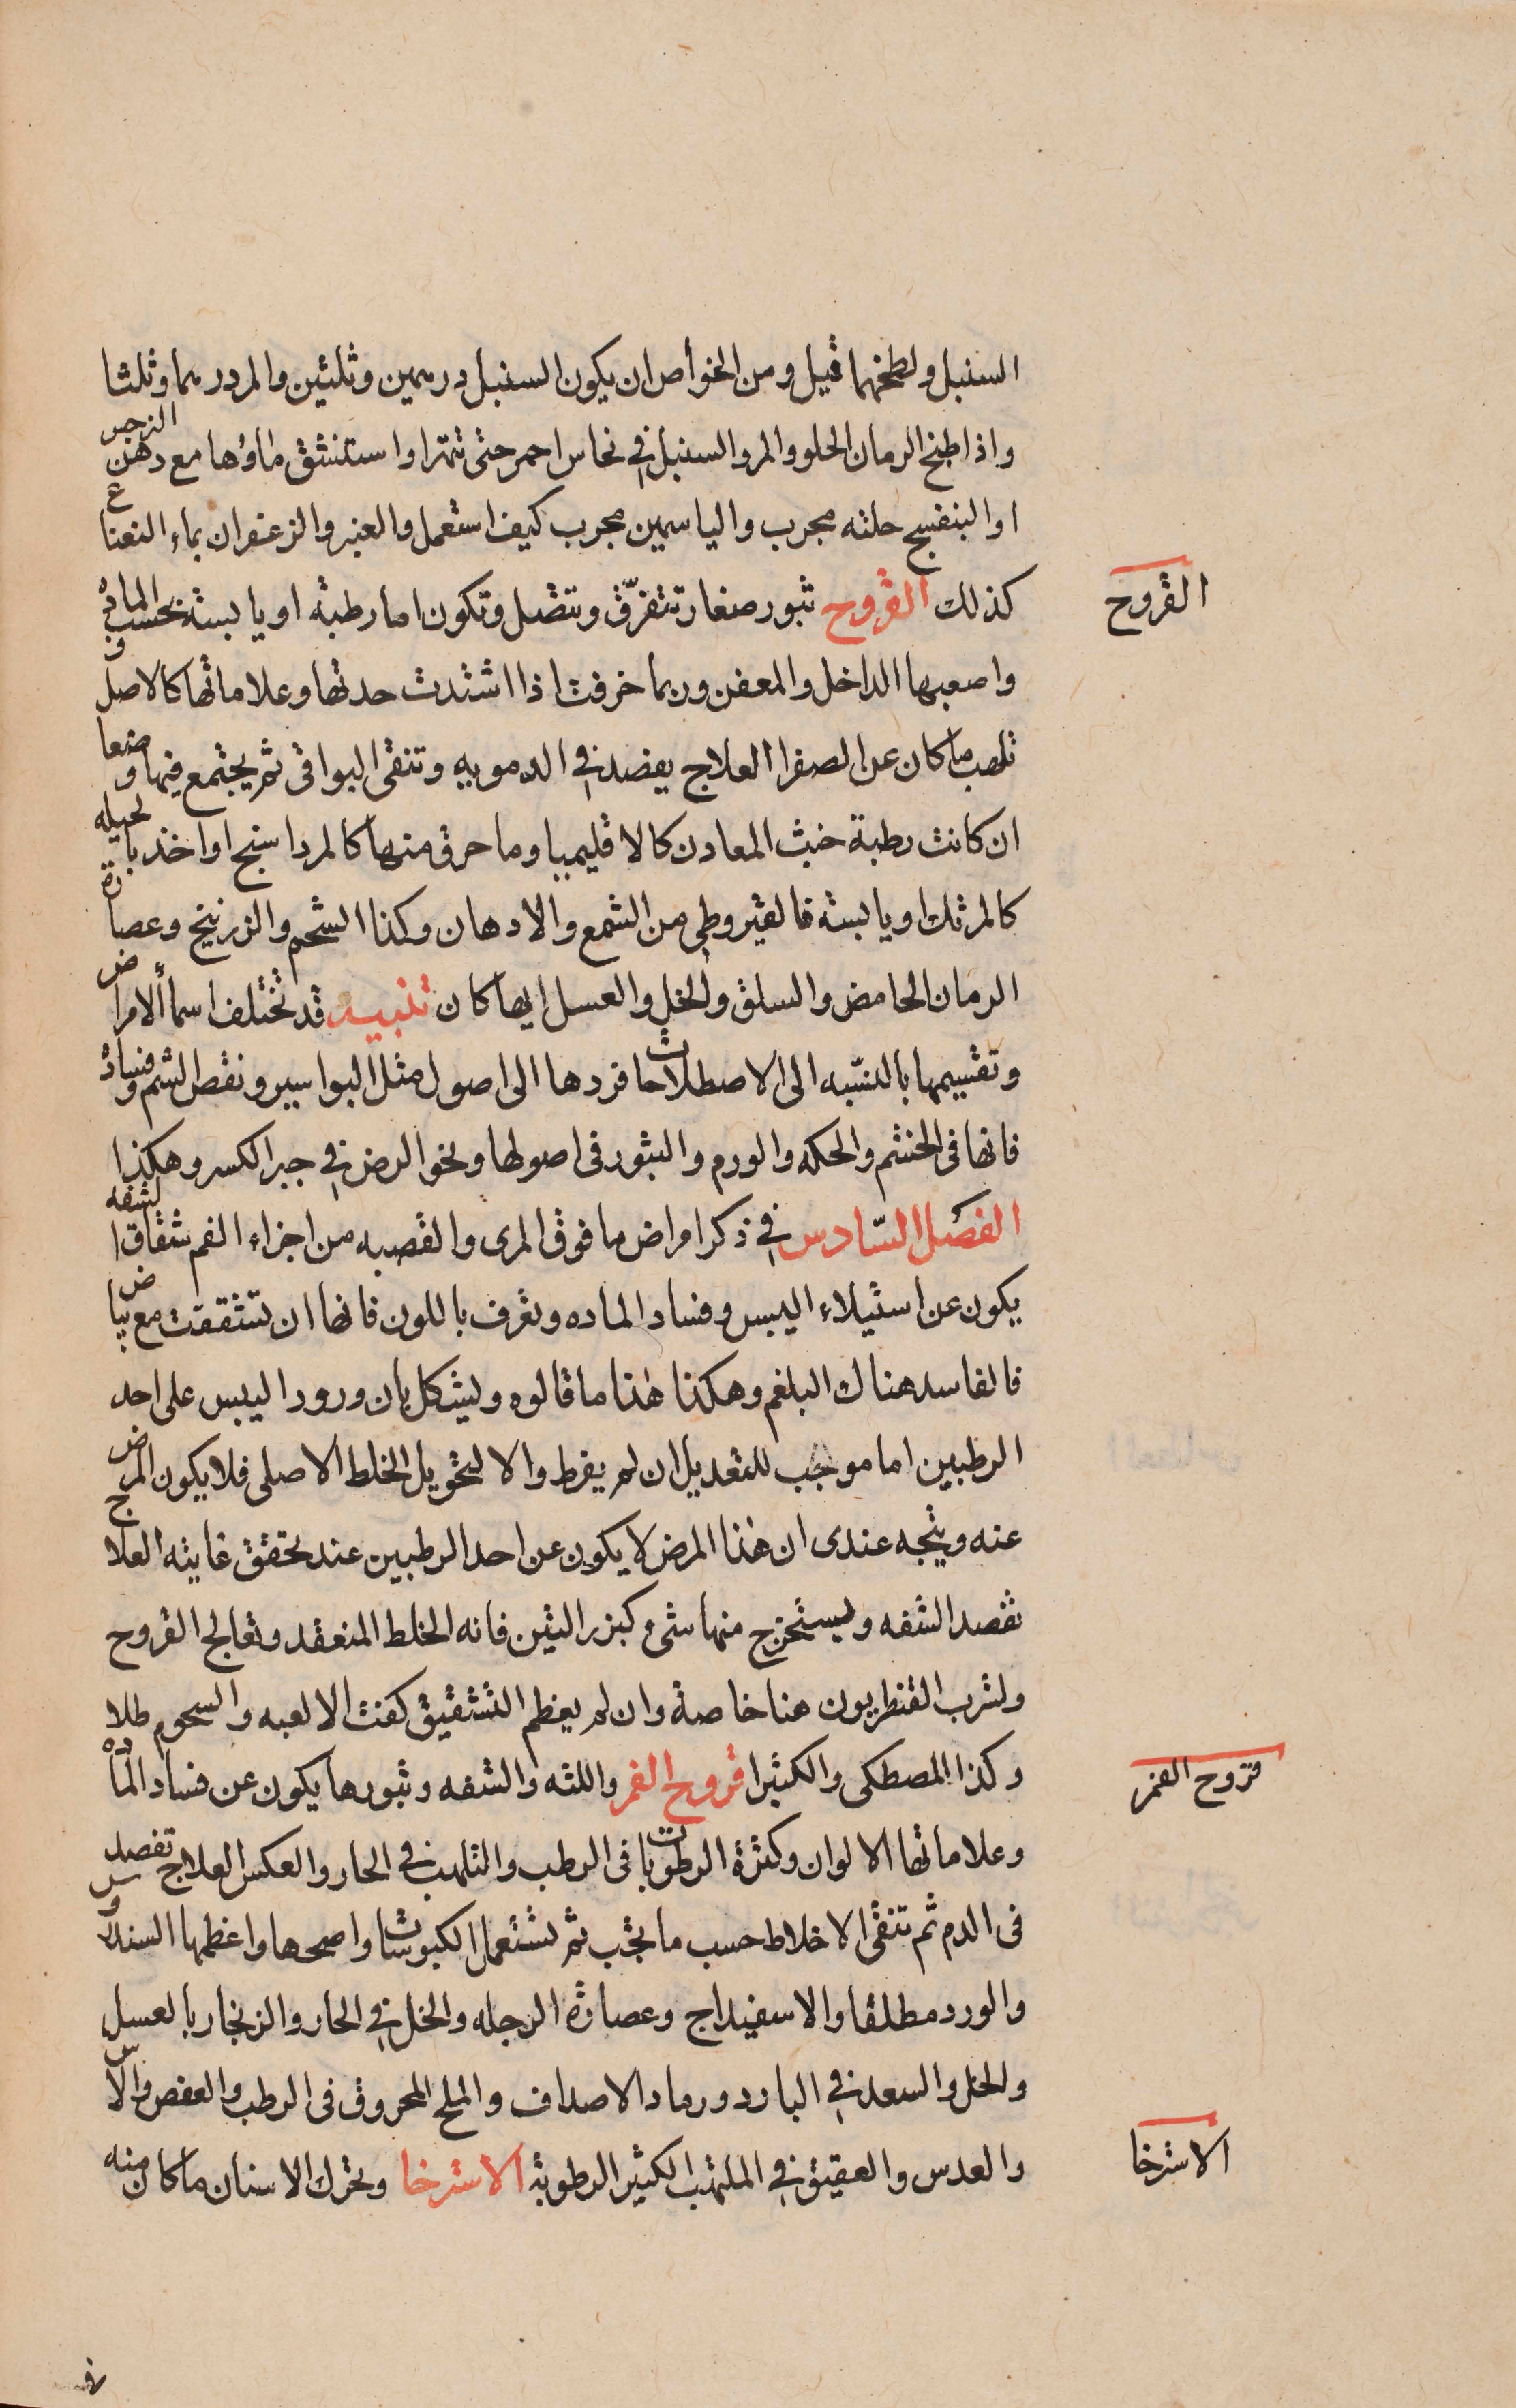 السنبل ولطخهما قيل ومن الخوأص ان يكون السنبل درهمين وثلثين والمر درهما وثلثا
واذا طبخ الرمان الحلو والمر والسنبل في نحاس احمر حتى تتهرا واستنشق ماؤها مع دهن النرجس
او البنفسج حلته مجرب والياسمين مجرب كيف استعمل والعنبر والزعفران بماء النعناع
كذلك القروح بثور صغار تتفرّق وتتصل وتكون اما رطبة او يابسة بحسب المادة
القروح
واصعبها الداخل والمعفن وربما خرقت اذا اشتدت حدتها وعلاماتها كالاصل و
تلهب ما كان عن الصفرا العلاج يفصد في الدمويه وتنقى البواقى ثم يجتمع فيها وضعا
ان كانت رطبة خبث المعادن كالاقليميا وما حرق منها كالمرداسنج او اخذ بالحيله
كالمرتك او يابسة فالقيروطي من الشمع والادهان وكذا الشحم والزرنيخ وعصارة
الرمان الحامض والسلق والخل والعسل ايها كان تنبيه قد تختلف اسما الامراض
وتقسيمها بالنسّبه الى الاصطلاحات فردها الى اصول مثل البواسير ونقص الشم وفساده
فانها فى الخشم والحكه والورم والبثور فى اصولها ونحو الرض في جبر الكسر وهكذا
الفصل السّادس في ذكر امراض ما فوق المرى والقصبه من اجزاء الفم شقاق الشفه
يكون عن استيلاء اليبس وفساد الماده وتعرف باللون فانها ان تشققت مع بياض
فالفاسد هناك البلغم وهكذا هذا ما قالوه ويشكل بان ورود اليبس على احد
الرطبين اما موجب للتعديل ان لم يفرط والا لتحويل الخلط الاصلى فلا يكون المرض
عنه ويتجه عندى ان هذا المرض لا يكون عن احد الرطبين عند تحقق غايته العلاج
تفصد الشفه ويستخرج منها شىء كبزر التين فانه الخلط المنعقد وتعالج القروح
ولشرب القنطريون هنا خاصة وان لم يعظم التشقيق كفت الالعبه والسحوم طلا
وكذا المصطكى والكثيرا قروح الفم واللثه والشفه وبثورها يكون عن فساد المادة
قروح الفم
وعلاماتها الالوان وكثرة الرطوبات فى الرطب والتلهب في الحار والعكس العلاج تفصد
فى الدم ثم تنقى الاخلاط حسب ما يجب ثم تستعمل الكبوسات واصحها واعظمها السندروس
والورد مطلقا والاسفيداج وعصارة الرجله والخل في الحار والزنجار بالعسل
والخل والسعد في البارد ورماد الاصداف والملح المحروق فى الرطب والعفص والآس
والعدس والعقيق في الملتهب الكثير الرطوبة الاسترخا وتحرك الاسنان ما كان منه
الاسترخا